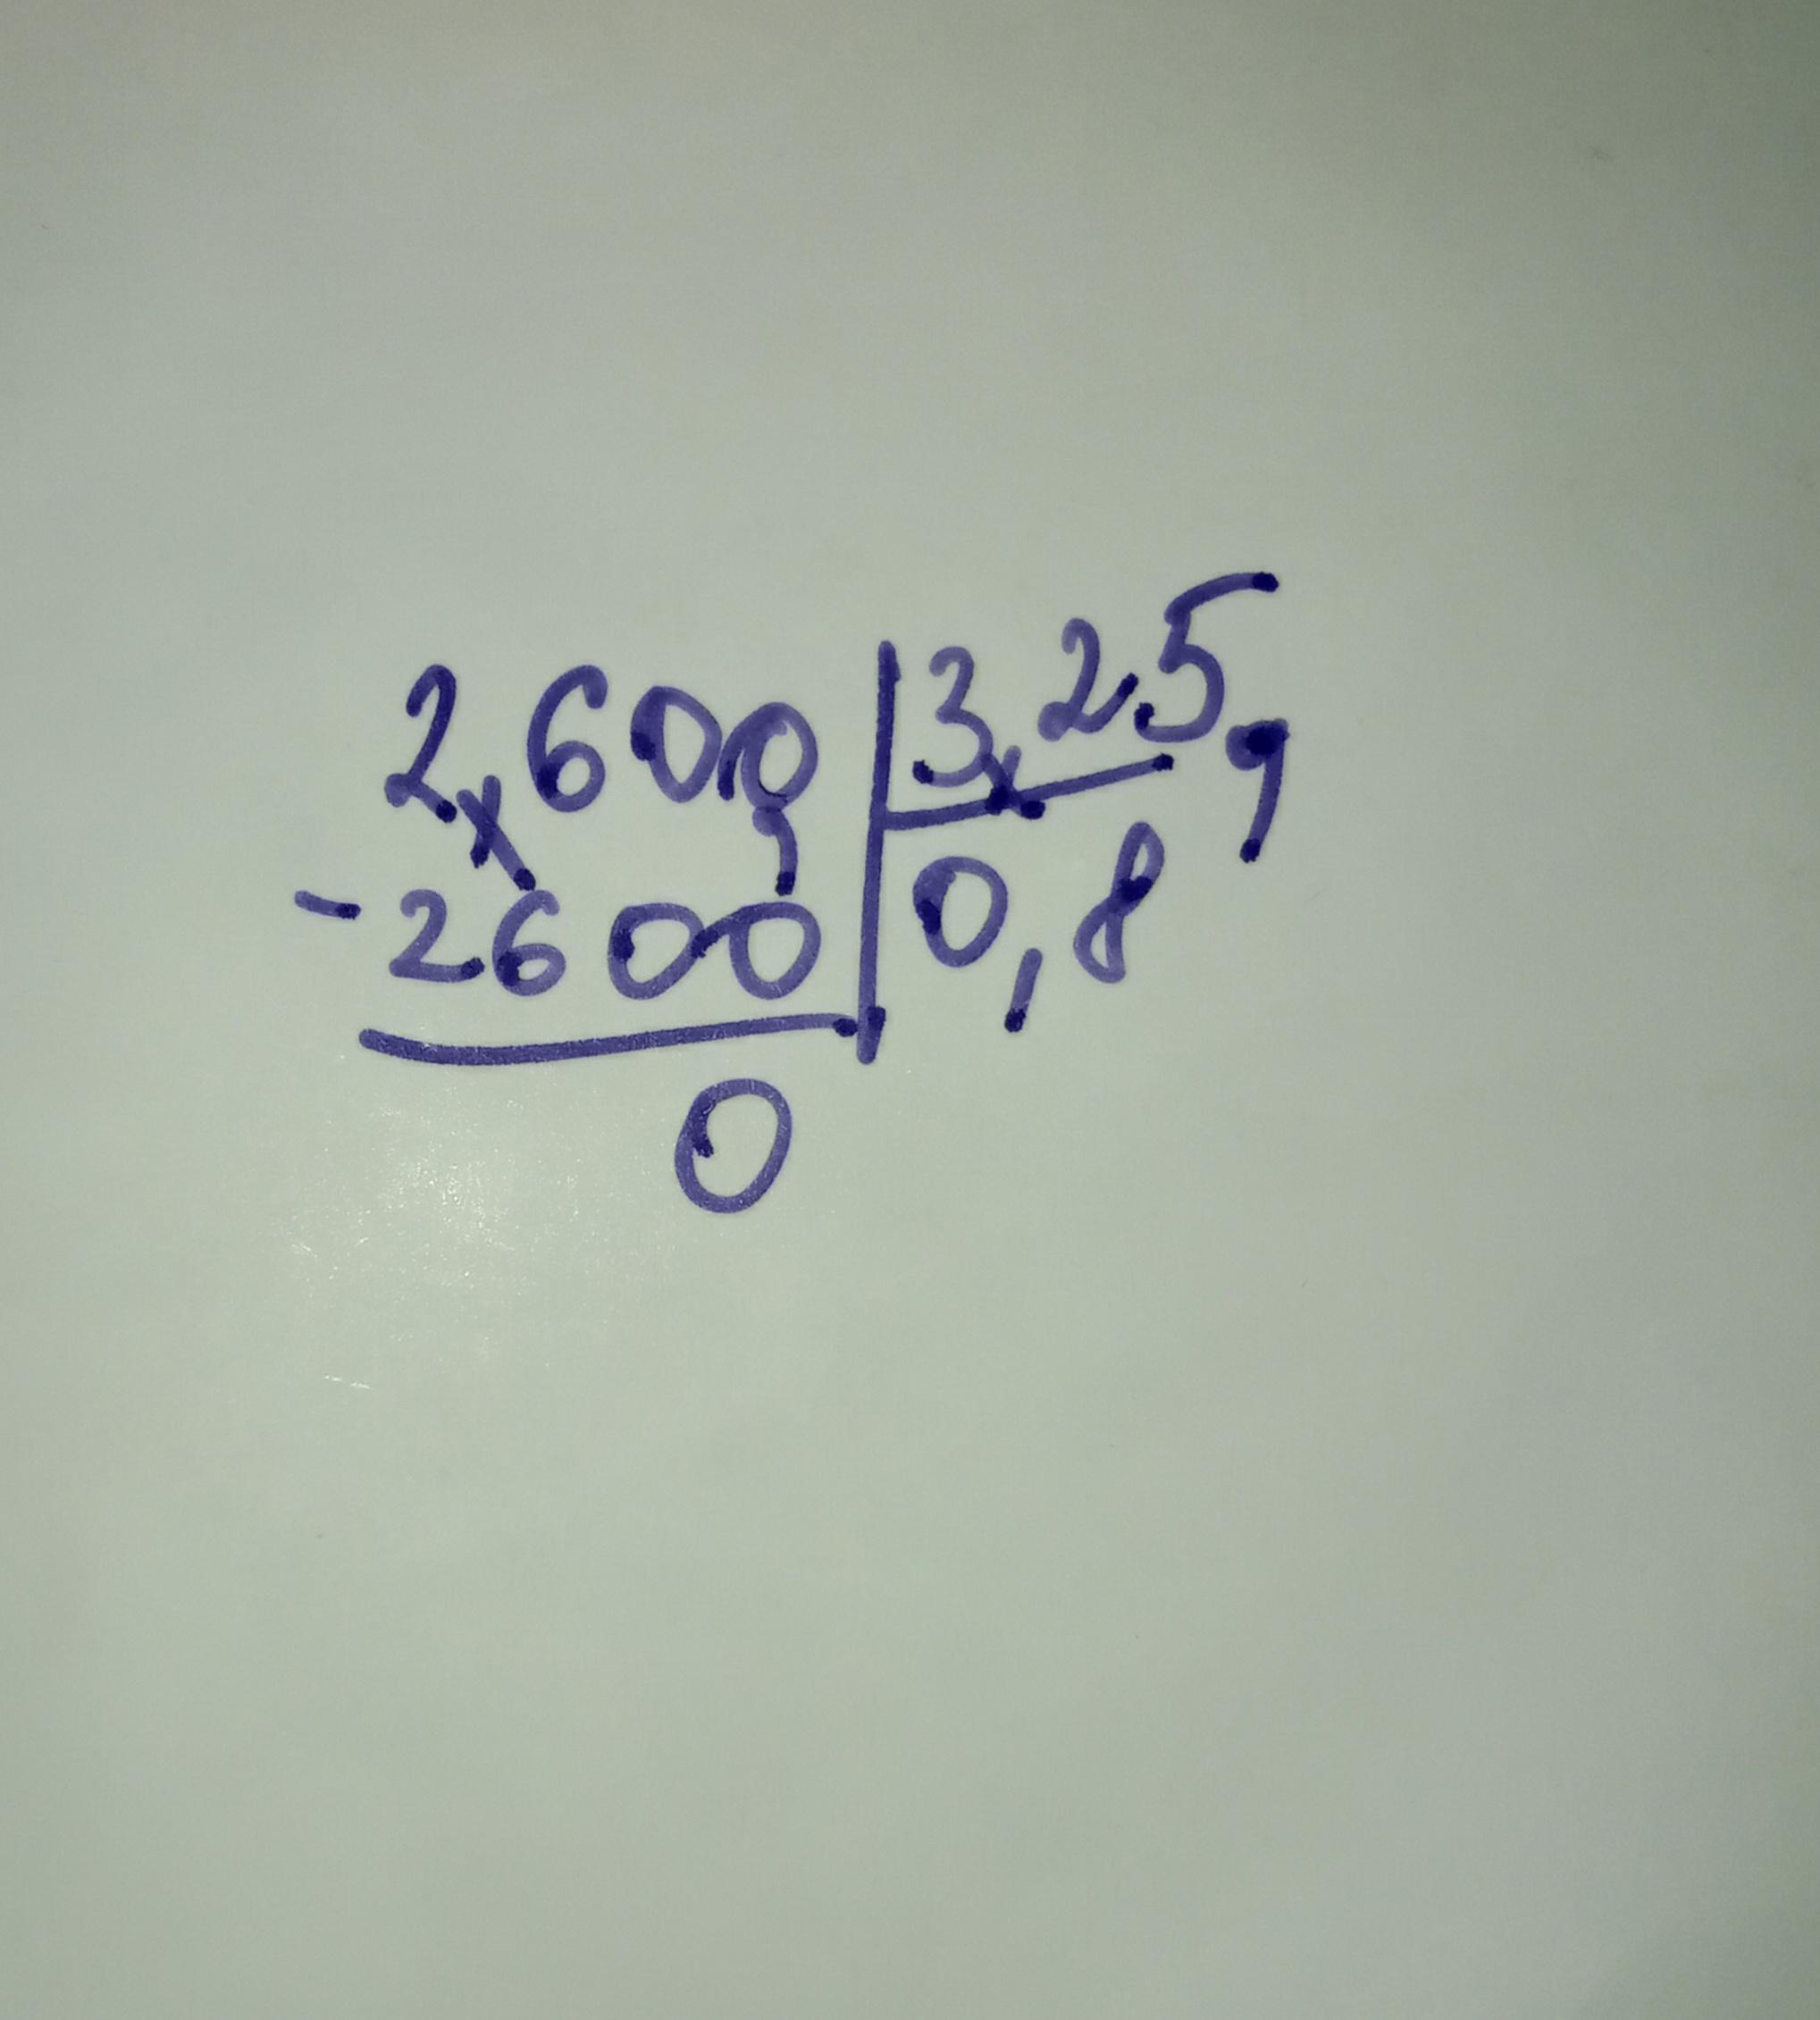 2,600, | 3,25,
- 2600 | 0,8
0